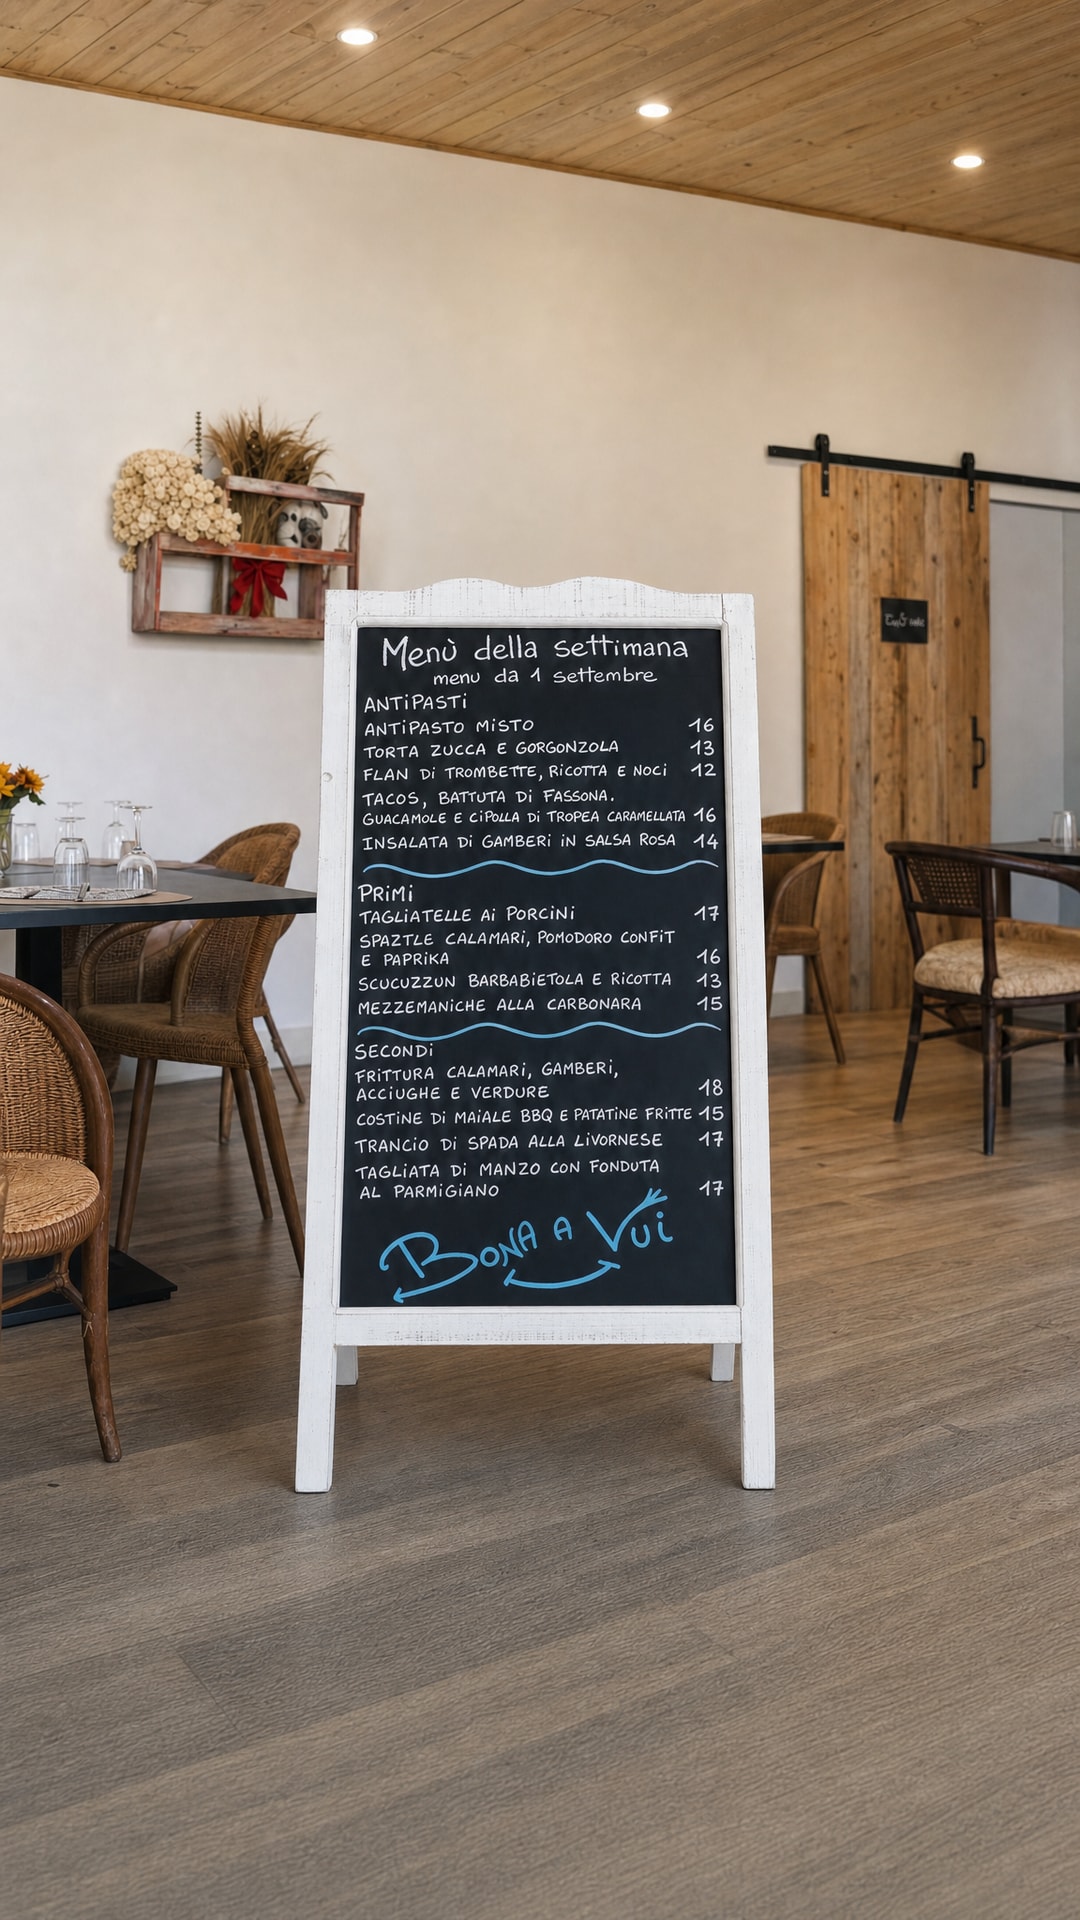 Menù della settimana
menu da 1 settembre
ANTIPASTI
ANTIPASTO MISTO 16
TORTA ZUCCA E GORGONZOLA 13
FLAN DI TROMBETTE, RICOTTA E NOCI 12
TACOS, BATTUTA DI FASSONA.
GUACAMOLE E CIPOLLA DI TROPEA CARAMELLATA 16
INSALATA DI GAMBERI IN SALSA ROSA 14
PRIMI
TAGLIATELLE AI PORCINI 17
SPAZTLE CALAMARI, POMODORO CONFIT
E PAPRIKA 16
SCUCUZZUN BARBABIETOLA E RICOTTA 13
MEZZEMANICHE ALLA CARBONARA 15
SECONDI
FRITTURA CALAMARI, GAMBERI,
ACCIUGHE E VERDURE 18
COSTINE DI MAIALE BBQ E PATATINE FRITTE 15
TRANCIO DI SPADA ALLA LIVORNESE 17
TAGLIATA DI MANZO CON FONDUTA
AL PARMIGIANO 17
BONA A VUI